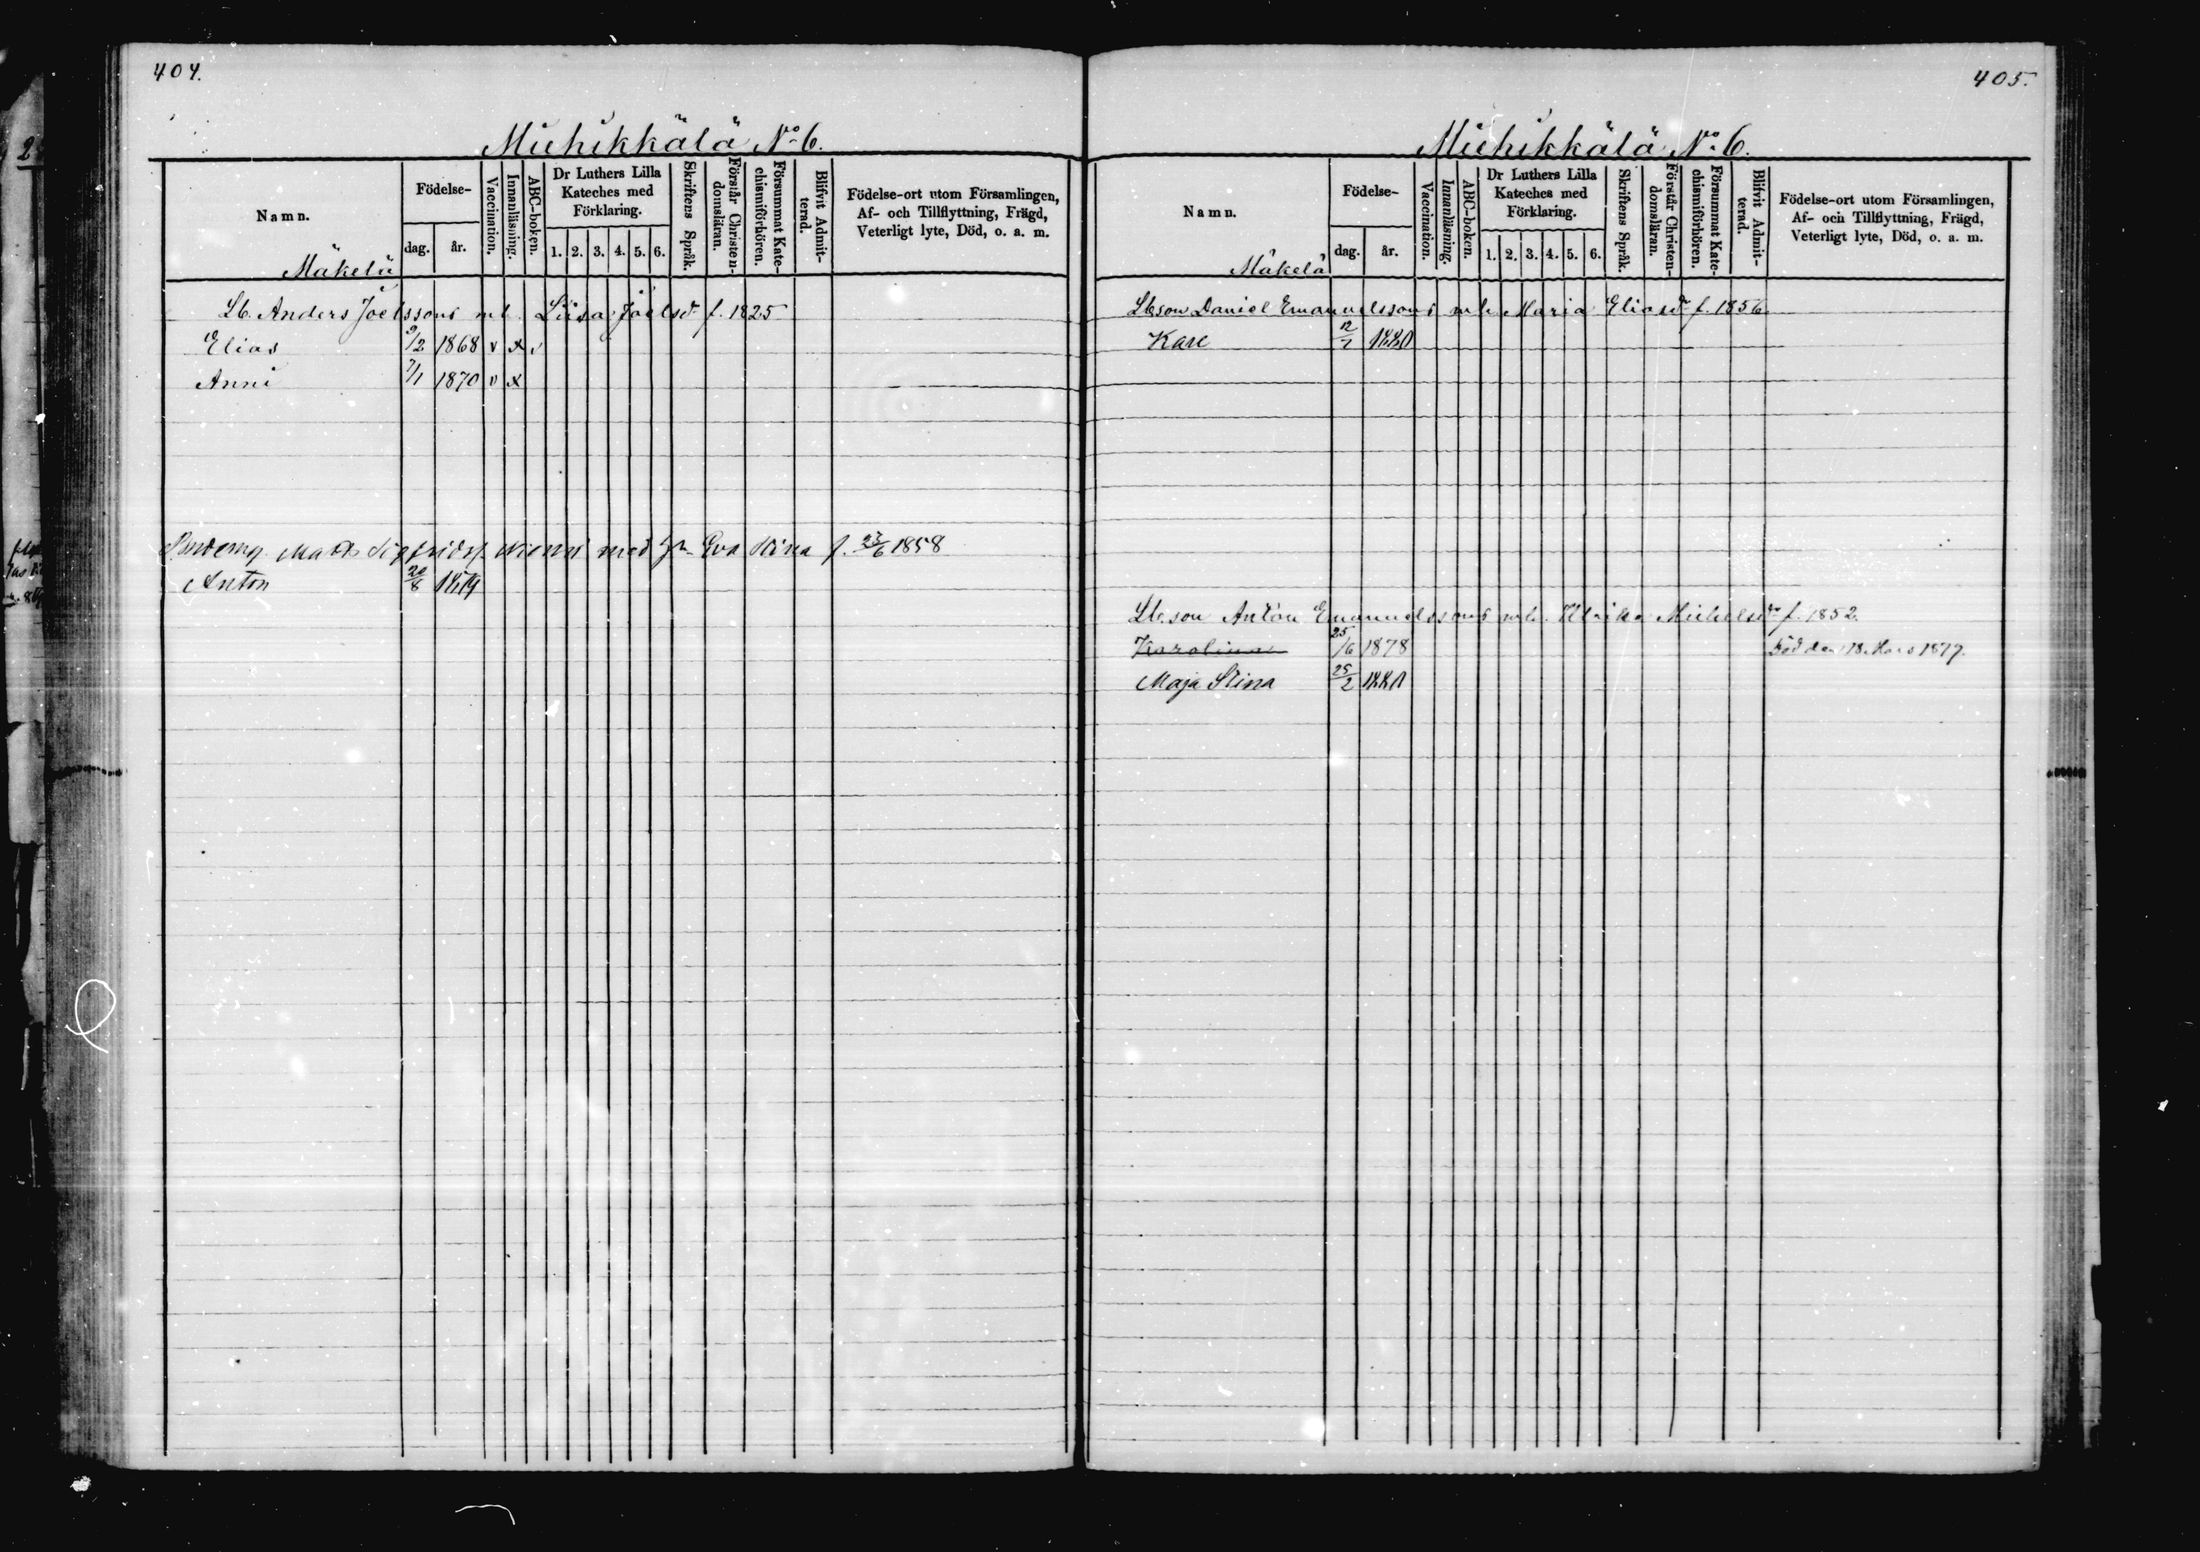 404.
Miehikkälä No 6.
Namn.
Födelse-
dag.
år.
Vaccination.
Innanläsning.
ABC-boken.
Dr Luthers Lilla
Kateches med
Förklaring.
1. 2. 3. 4. 5. 6.
Skriftens Språk.
Förstår Christen-
domsläran.
Försummat Kate-
chismiförhören.
Blifvit Admit-
terad.
Födelse-ort utom Församlingen,
Af- och Tillflyttning, Frägd,
Veterligt lyte, Död, o. a. m.
Mäkelä
Lb. Anders Joelssons m h. Liisa Joelsdr f. 1825
Elias 9/2 1868 v x v
Anni 7/1 1870 v x
Matts Sigfridss. Niemi med h. Eva Stina f. 23/6 1858
Anton 20/8 1879
405.
Miehikkälä No 6.
Namn.
Födelse-
dag.
år.
Vaccination.
Innanläsning.
ABC-boken.
Dr Luthers Lilla
Kateches med
Förklaring.
1. 2. 3. 4. 5. 6.
Skriftens Språk.
Förstår Christen-
domsläran.
Försummat Kate-
chismiförhören.
Blifvit Admit-
terad.
Födelse-ort utom Församlingen,
Af- och Tillflyttning, Frägd,
Veterligt lyte, Död, o. a. m.
Mäkelä
Lbson Daniel Emanuelssons m h. Maria Eliasdr f. 1856
Karl 12/7 1880
Lb. son Anton Emanuelssons m h. Ulrika Michelsdr f. 1852.
Karolina 25/6 1878 Död den 18 Mars 1879.
Maja Stina 25/2 1880